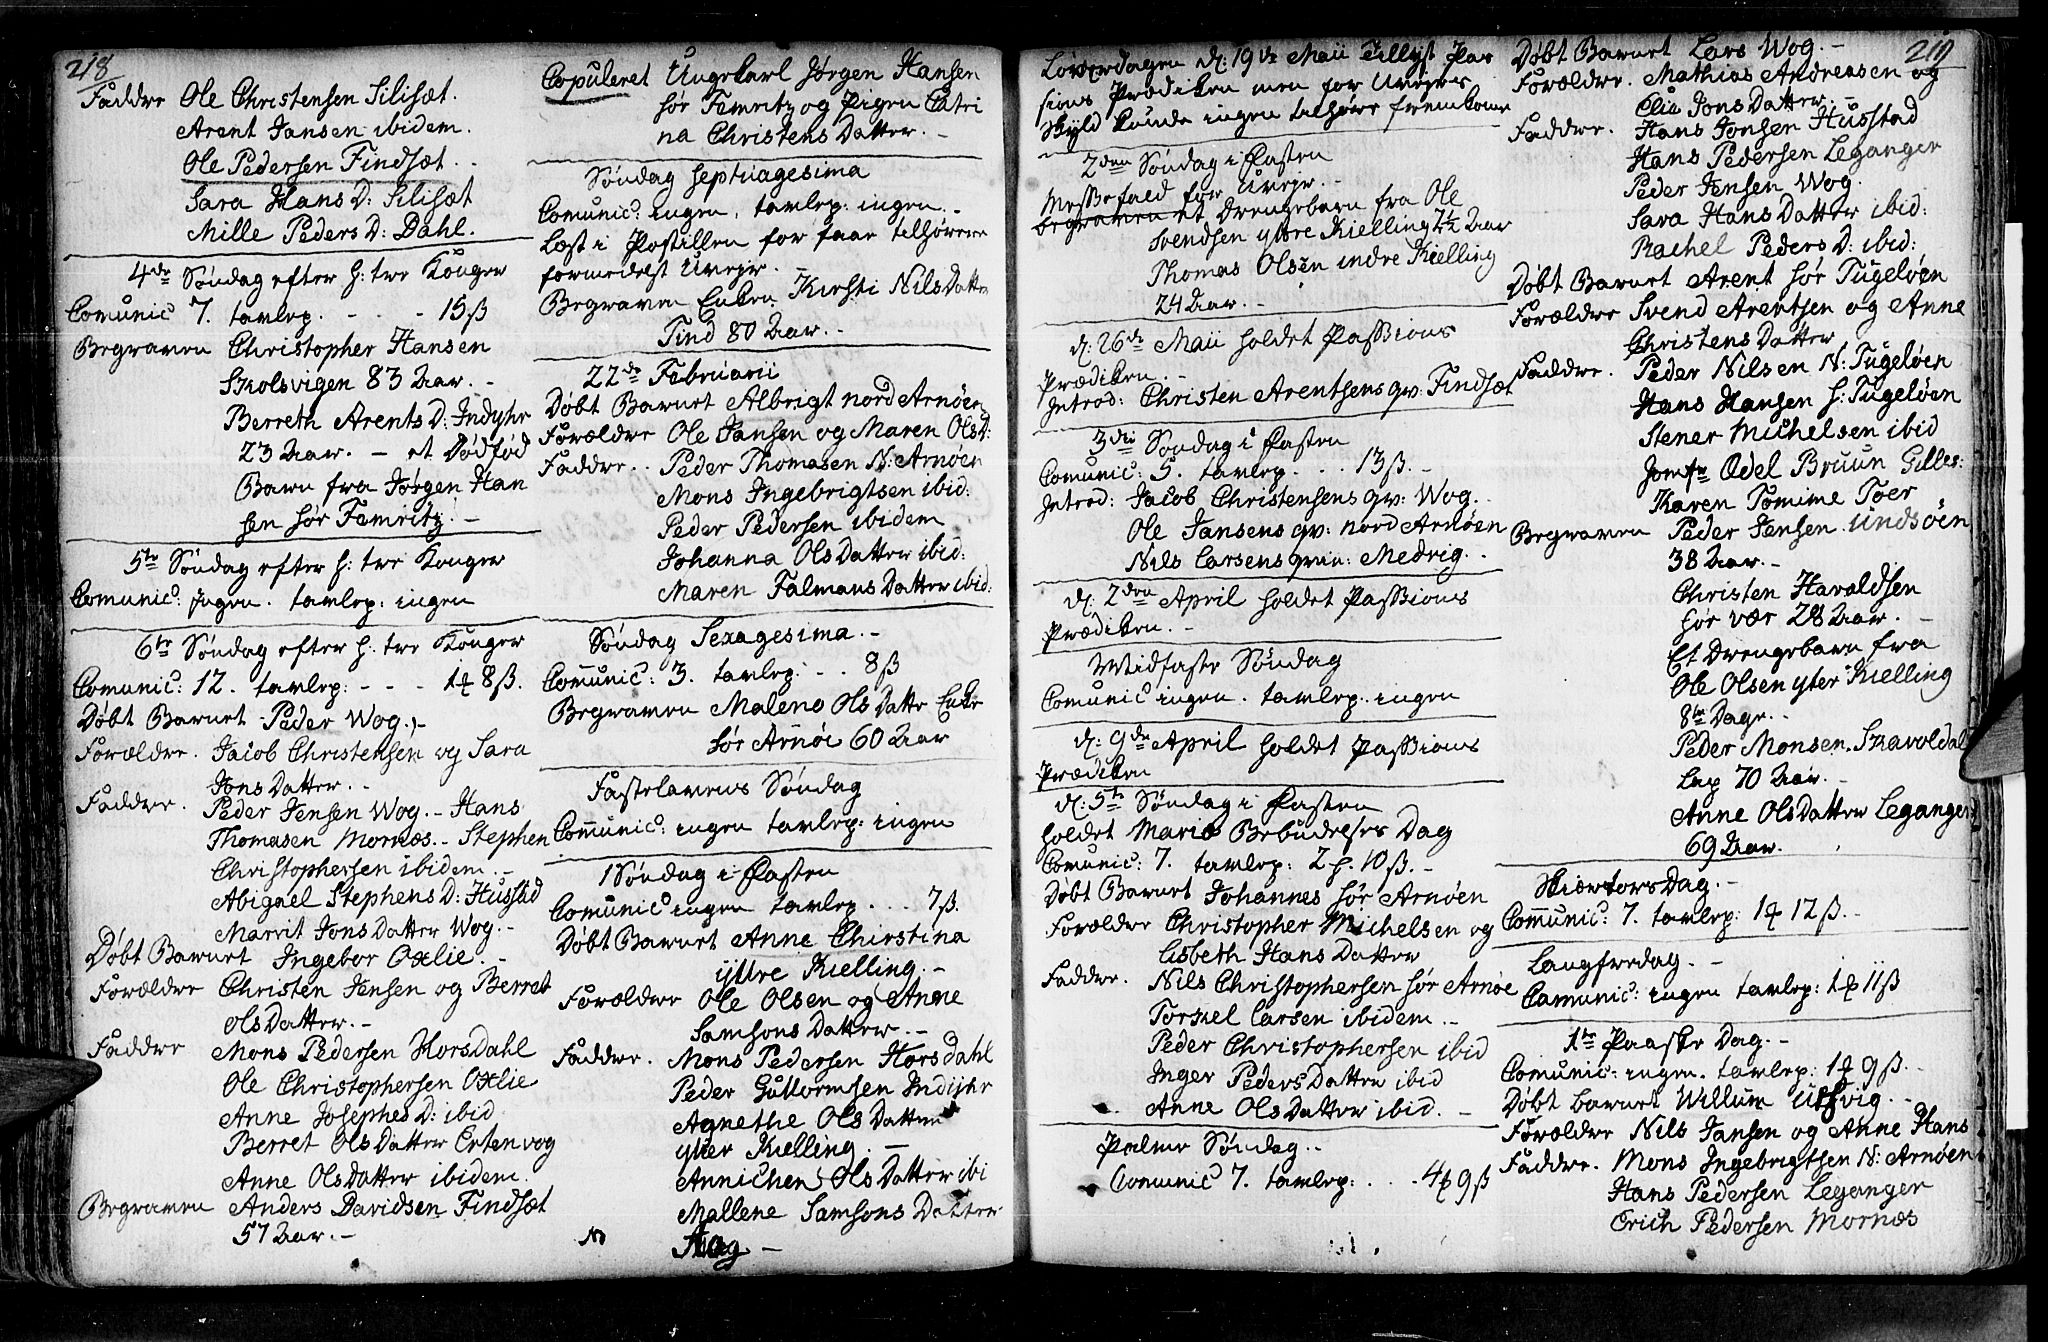 218
Faddre Ole Christensen Silisæt.
Arent Jansen ibidem.
Ole Pedersen Findsæt.
Sara Hans D: Silisæt
Mille Peders D: Dahl.
4de Søndag efter h: tre Konger
Comunic 7. tavlep. - - - 15 ß
Begraven Christopher Hansen
Skolsvigen 83 Aar. -
Berreth Arents D: Indyhr
23 Aar. - et Dødfød
Barn fra Jørgen Han
sen sør Femritz. -
5te Søndag efter h: tre Konger
Comunic: Ingen. tavlep: ingen
6te Søndag efter h: tre Konger
Comunic: 12. tavlep: - - - 1 8 ß.
Døbt Barnet Peder Wog. -
Forældre. Jacob Christensen og Sara
Jons Datter. -
Faddre. Peder Jensen Wog. - Hans
Thomasen Mornæs. - Stephen
Christophersen ibidem. -
Abigael Stephens D: Husstad
Marrit Jons Datter Wog. -
Døbt Barnet Ingebor Oxlie. -
Forældre Christen Jensen og Berret
Ols Datter. -
Faddre Mons Pedersen Horsdahl
Ole Christophersen Oxlie
Anne Josephes D: ibid
Berret Ols Datter Ertenvog
Anne Ols Datter ibidem.
Begraven Anders Davidsen Findsæt
57 Aar. -
Copuleret Ungekarl Jørgen Hansen
sør Femritz og Pigen Catri
na Christens Datter. -
Søndag Septuagesima
Comunic: ingen, tavlep: ingen. -
Læst i Postillen for faae tilhørere
formedelst Uvejr.
Begraven Enken Kirsti Nils Datter
Find 80 Aar. -
22de Februarii
Døbt Barnet Albrigt nord Arnøen
Forældre Ole Jansen og Maren Ols D:
Faddre. Peder Thomasen N: Arnøen
Mons Ingebrigtsen ibid:
Peder Pedersen ibidem
Johanna Ols Datter ibid:
Maren Falmans Datter ibid:
Søndag Sexagesima. -
Comunic: 3. tavlep: - . . 8 ß
Begraven Maleno Ols Datter Enke
sør Arnøe 60 Aar
Fastelavens Søndag
Comunic: ingen tavlep: ingen
1 Søndag i Fasten
Comunic ingen tavlep . . . 7 ß.
Døbt Barnet Anne Chirstina
yttre Kielling. -
Forældre Ole Olsen og Anne
Samsons Datter. -
Faddre. Mons Pedersen Horsdahl
Peder Guttormsen Indijhr
Agnethe Ols Datter
ytter Kielling. -
Annichen Ols Datter ibi
Mallene Samsons Datter
Aag. -
Løverdagen d: 19de Maii tillyst Pas
sions Prædiken men for Uvejrs
skyld kunde ingen tilhørere fremkome
2den Søndag i Fasten
Messefald for Uvejr. -
begraven et Drengebarn fra Ole
Svendsen ytre Kielling 2½ Aar
Thomas Olsen indre Kielling
24 Aar. -
d: 26de Maii holdet Passions
Prædiken. -
Introd: Christen Arentsens qv: Findsæt
3die Søndag i Fasten
Comunic: 5. tavlep. . . 13 ß. -
Introd: Jacob Christensens qv: Wog.
Ole Jansens qv: nord Arnøen
Nils Larsens qvin: Medvig.
d: 2den April holdet Passions
Prædiken. -
Midfaste Søndag
Comunic ingen. tavlep. ingen
d: 9de April holdet Passions
Prædiken
d: 5te Søndag i Fasten
holdet Mariæ Bebudelses Dag
Comunic: 7. tavlep: 2 h. 10 ß. -
Døbt Barnet Johannes sør Arnøen
Forældre Christopher Michelsen og
Lisbeth Hans Datter
Faddre. Nils Christophersen sør Arnøe
Torkel Larsen ibidem. -
Peder Christophersen ibid
Inger Peders Datter ibid
Anne Ols Datter ibid. -
Palme Søndag. -
Comunic 7. tavlep: . . . 4 9 ß
219
Døbt Barnet Lars Wog. -
Forældre. Mathias Andreasen og
Elie Jons Datter. -
Faddre. Hans Jonsen Husstad
Hans Pedersen Leganger
Peder Jensen Wog.
Sara Hans Datter ibid:
Rachel Peders D: ibid:
Døbt Barnet Arent sør Fugeløen
Forældre Svend Arentsen og Anne
Christens Datter
Faddre. Peder Nilsen N: Fugeløen
Hans Hansen S: Fugeløen
Stener Michelsen ibid
Jomfr Odel Bruun Gilles:
Karen Tomime Foer
Begraven Peder Jensen Undsøen
38 Aar. -
Christen Haraldsen
sør vær 28 Aar. -
Et Drengebarn fra
Ole Olsen yter Kielling
8te Dage. -
Peder Monsen Skavoldal
Lap 70 Aar. -
Anne Ols Datter Leganger
69 Aar.
Skiærtors Dag. -
Comunic: 7. tavlep: 1 12 ß. -
Langfredag. -
Comunic: ingen tavlep: 1 11 ß
1te Paaske Dag. -
Comunic: ingen. tavlep: 1 9 ß. -
Døbt barnet Willum Utvig. -
Forældre Nils Jansen og Anne Hans
Faddre. Mons Ingebrigtsen N: Arnøen
Hans Pedersen Leganger
Erich Pedersen Mornæs